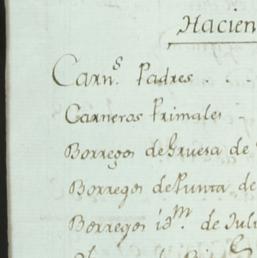 Hacien
Carn.s Padres . . .
Carneros Primales -
Borregos de Gruesa de
Borregos de Punta de
Borregos 10m. de Juli